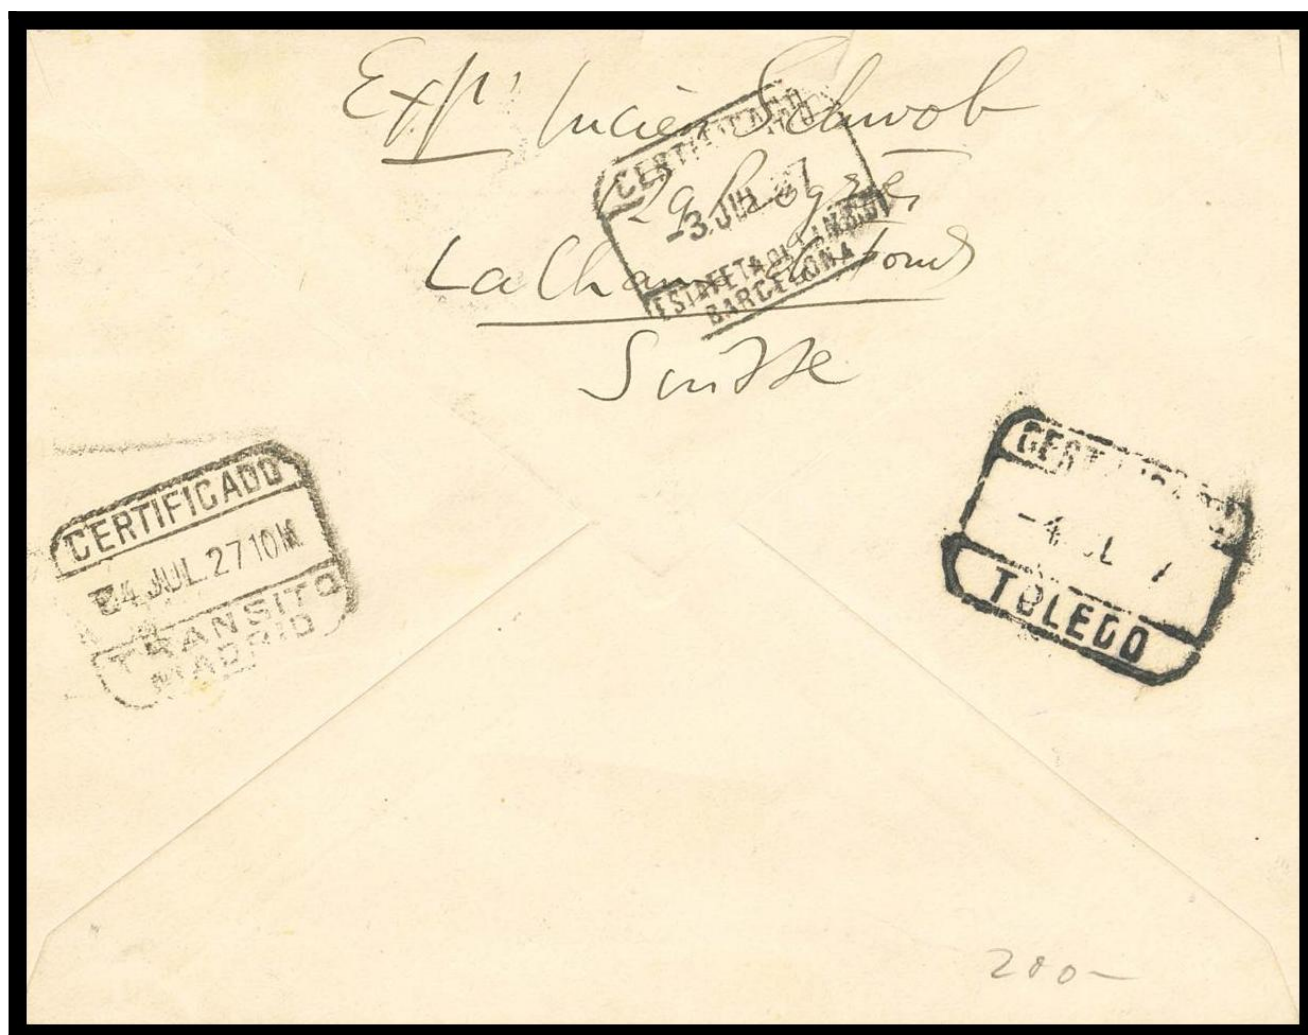 Expr Lucien Schwob
Progrès
La Chaux de Fonds
Suisse
CERTIFICADO
-3 JUL. 27
ESTAFETA DE
BARCELONA
CERTIFICADO
4 JUL. 27 10M
TRANSITO
MADRID
CERTIFICADO
-4 JUL 7
TOLEDO
200-